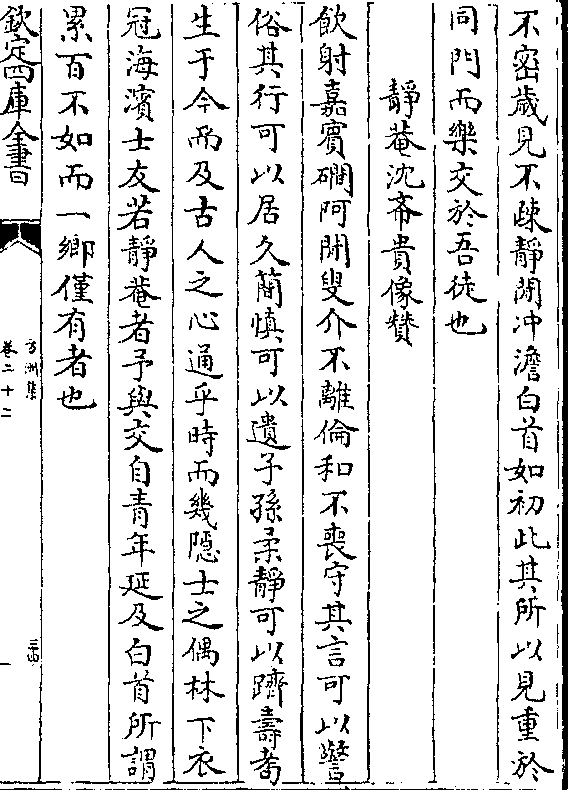 不密歲見不疎靜閒冲澹白首如初此其所以見重於
同門而樂交於吾徒也
靜菴沈齋貴像贊
飲射嘉賓磵阿閒叟介不離倫和不喪守其言可以警
俗其行可以居久蘭慎可以遺子孫柔靜可以躋壽耇
生于今而及古人之心通乎時而幾隱士之偶林下衣
冠海濱士友若靜菴者予與交自青年延及白首所謂
累百不如而一鄉僅有者也
欽定四庫全書
方洲集
卷二十二
三四